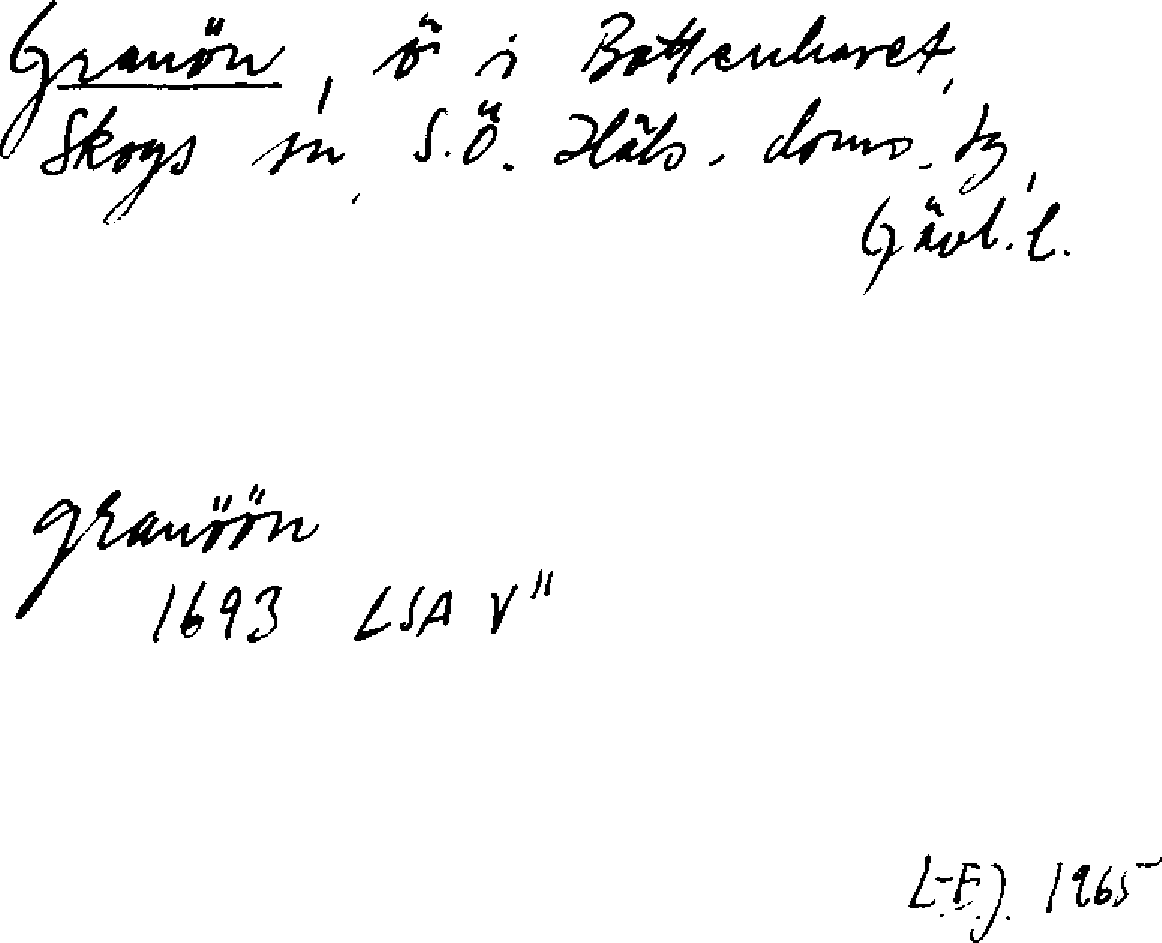 Granön, ö i Bottenhavet,
Skogs sn, S.Ö. Häls. doms. tg,
Gävl. l.
granöön
1693 LSA V"
L-E.J. 1965